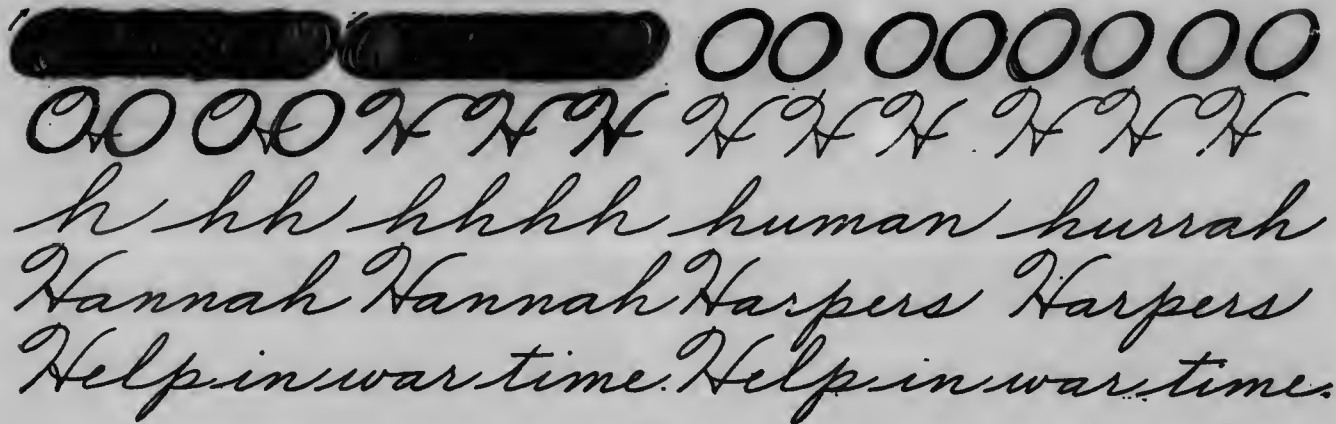 OO OOOO OO
OO OO H H H H H H H H H
h hh hhhh human hurrah
Hannah Hannah Harpers Harpers
Help in war time. Help in war time.